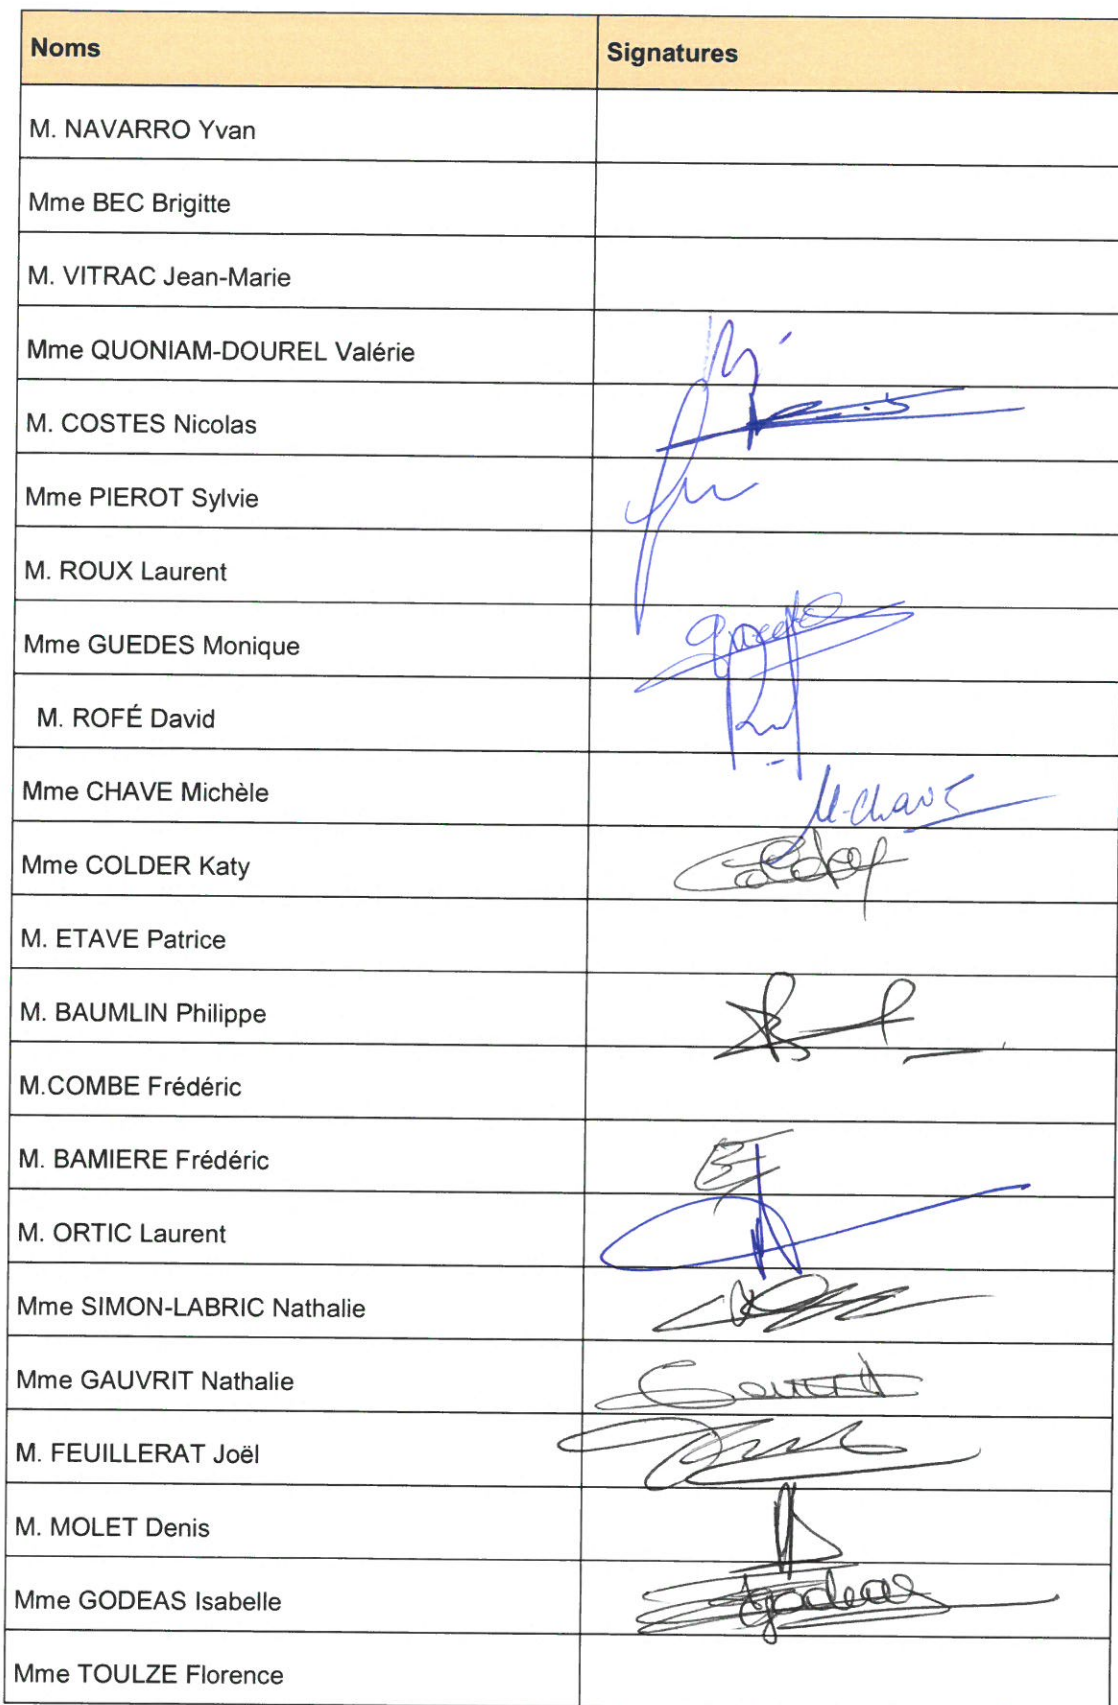 Noms Signatures
M. NAVARRO Yvan
Mme BEC Brigitte
M. VITRAC Jean-Marie
Mme QUONIAM-DOUREL Valérie
M. COSTES Nicolas
Mme PIEROT Sylvie
M. ROUX Laurent
Mme GUEDES Monique
M. ROFÉ David
Mme CHAVE Michèle M-Chave
Mme COLDER Katy
M. ETAVE Patrice
M. BAUMLIN Philippe
M.COMBE Frédéric
M. BAMIERE Frédéric
M. ORTIC Laurent
Mme SIMON-LABRIC Nathalie
Mme GAUVRIT Nathalie
M. FEUILLERAT Joël
M. MOLET Denis
Mme GODEAS Isabelle Godeas
Mme TOULZE Florence